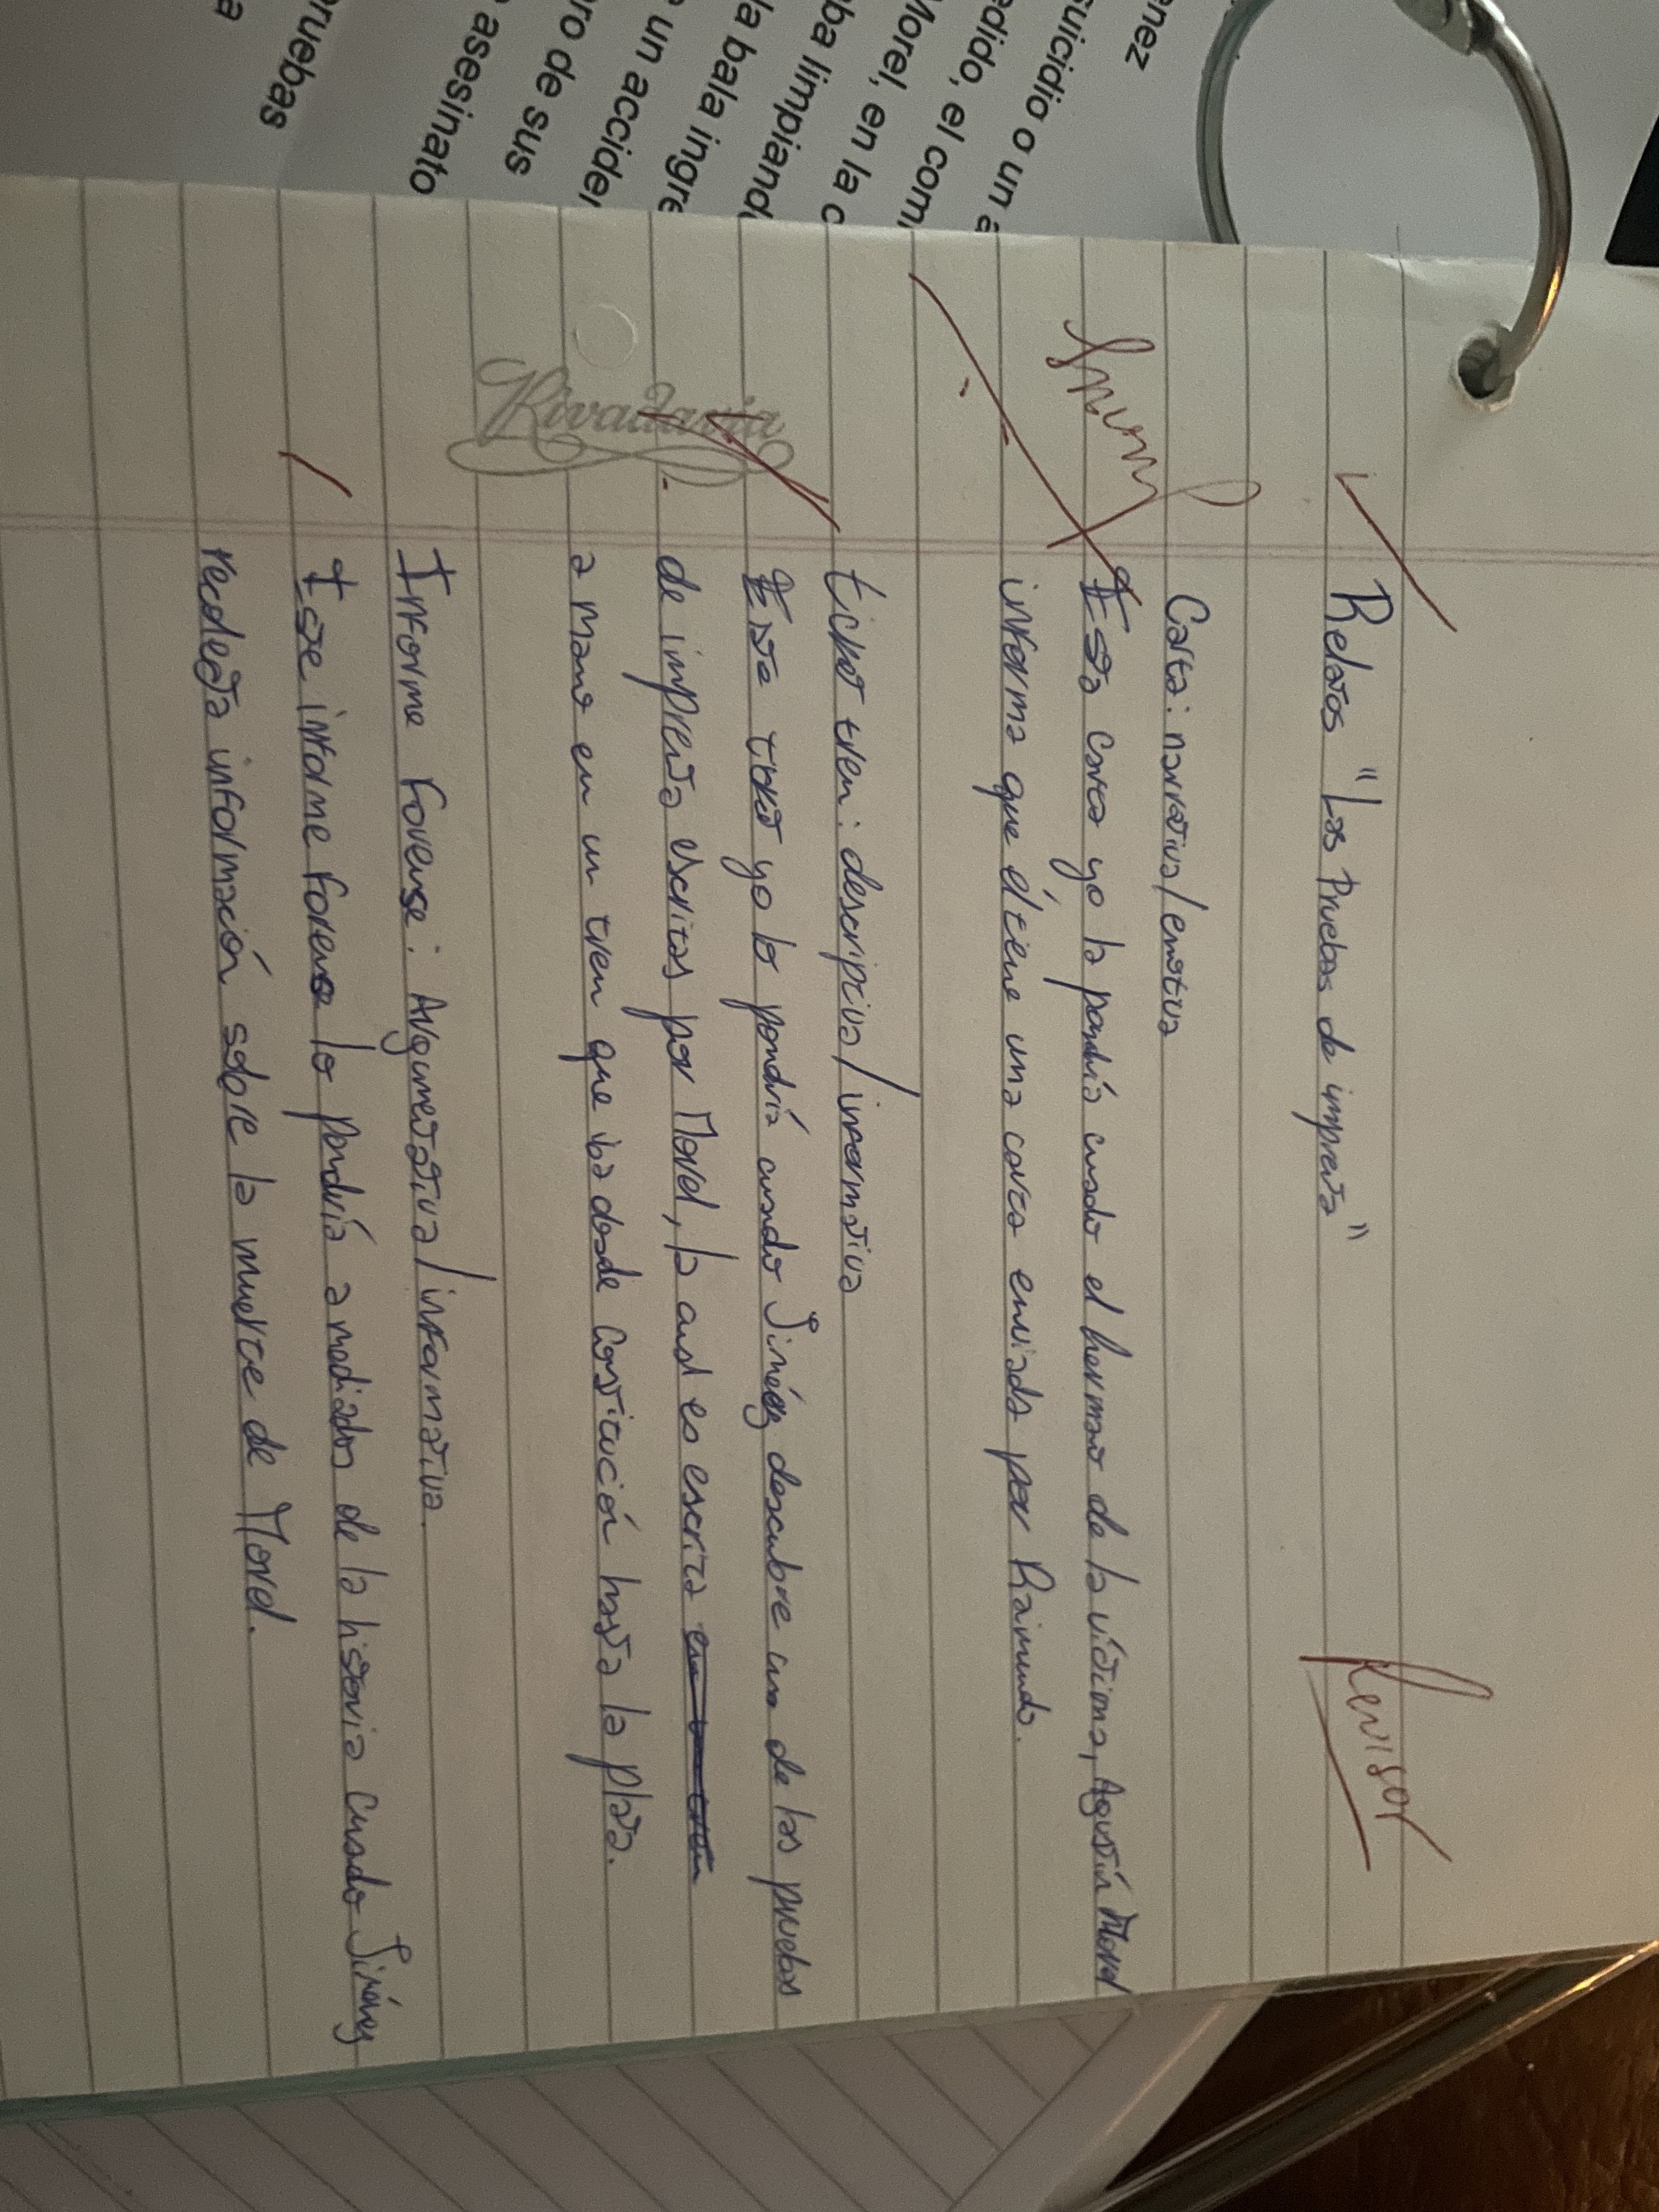 enez
suicidio o un a
edido, el com
Morel, en la c
ba limpiand
la bala ingre
un acciden
ro de sus
asesinato
ruebas
a
Relatos "Las Pruebas de imprenta"
Revisar
Carta: narrativa/emotiva
Esta carta yo la pondría cuando el hermano de la víctima, Agustín Morel
informa que él tiene una carta enviada por Raimundo.
ticket tren: descriptivo/informativa
Este ticket yo lo pondría cuando Jiménez descubre una de las pruebas
de imprenta escritas por Morel, la cual es escrita
a mano en un tren que iba desde Constitución hasta la plata.
Rivadavia
Informe forense: Argumentativa/informativa.
Este informe forense lo pondría a mediados de la historia cuando Jiménez
recolecta información sobre la muerte de Morel.